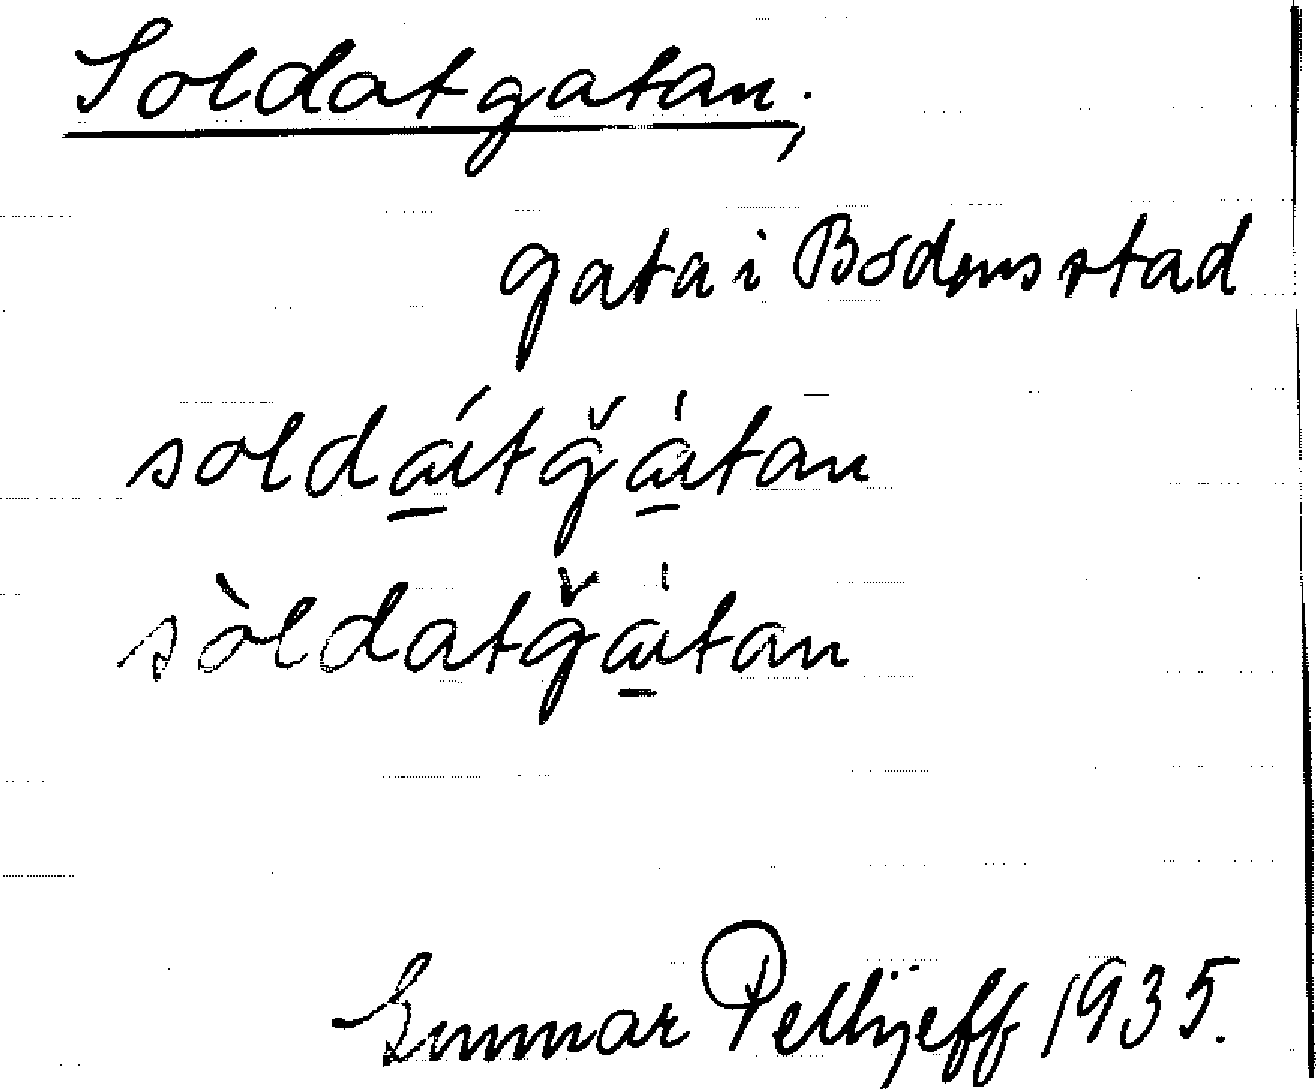 Soldatgatan;
gata i Bodens stad
soldátğa̱tan
sòldatğa̱tan
Gunnar Pellijeff 1935.